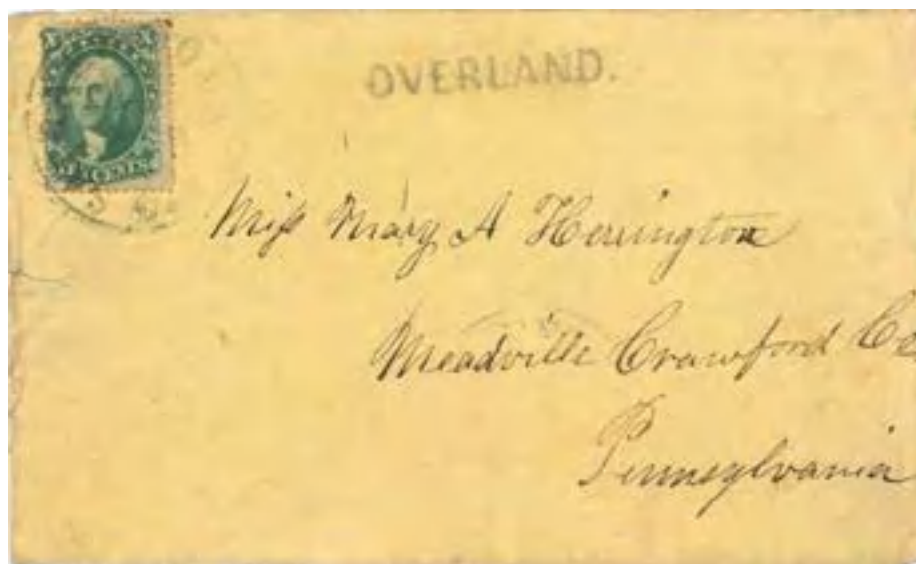 OVERLAND.
Miss Mary A Herrington
Meadville Crawford Co
Pennsylvania